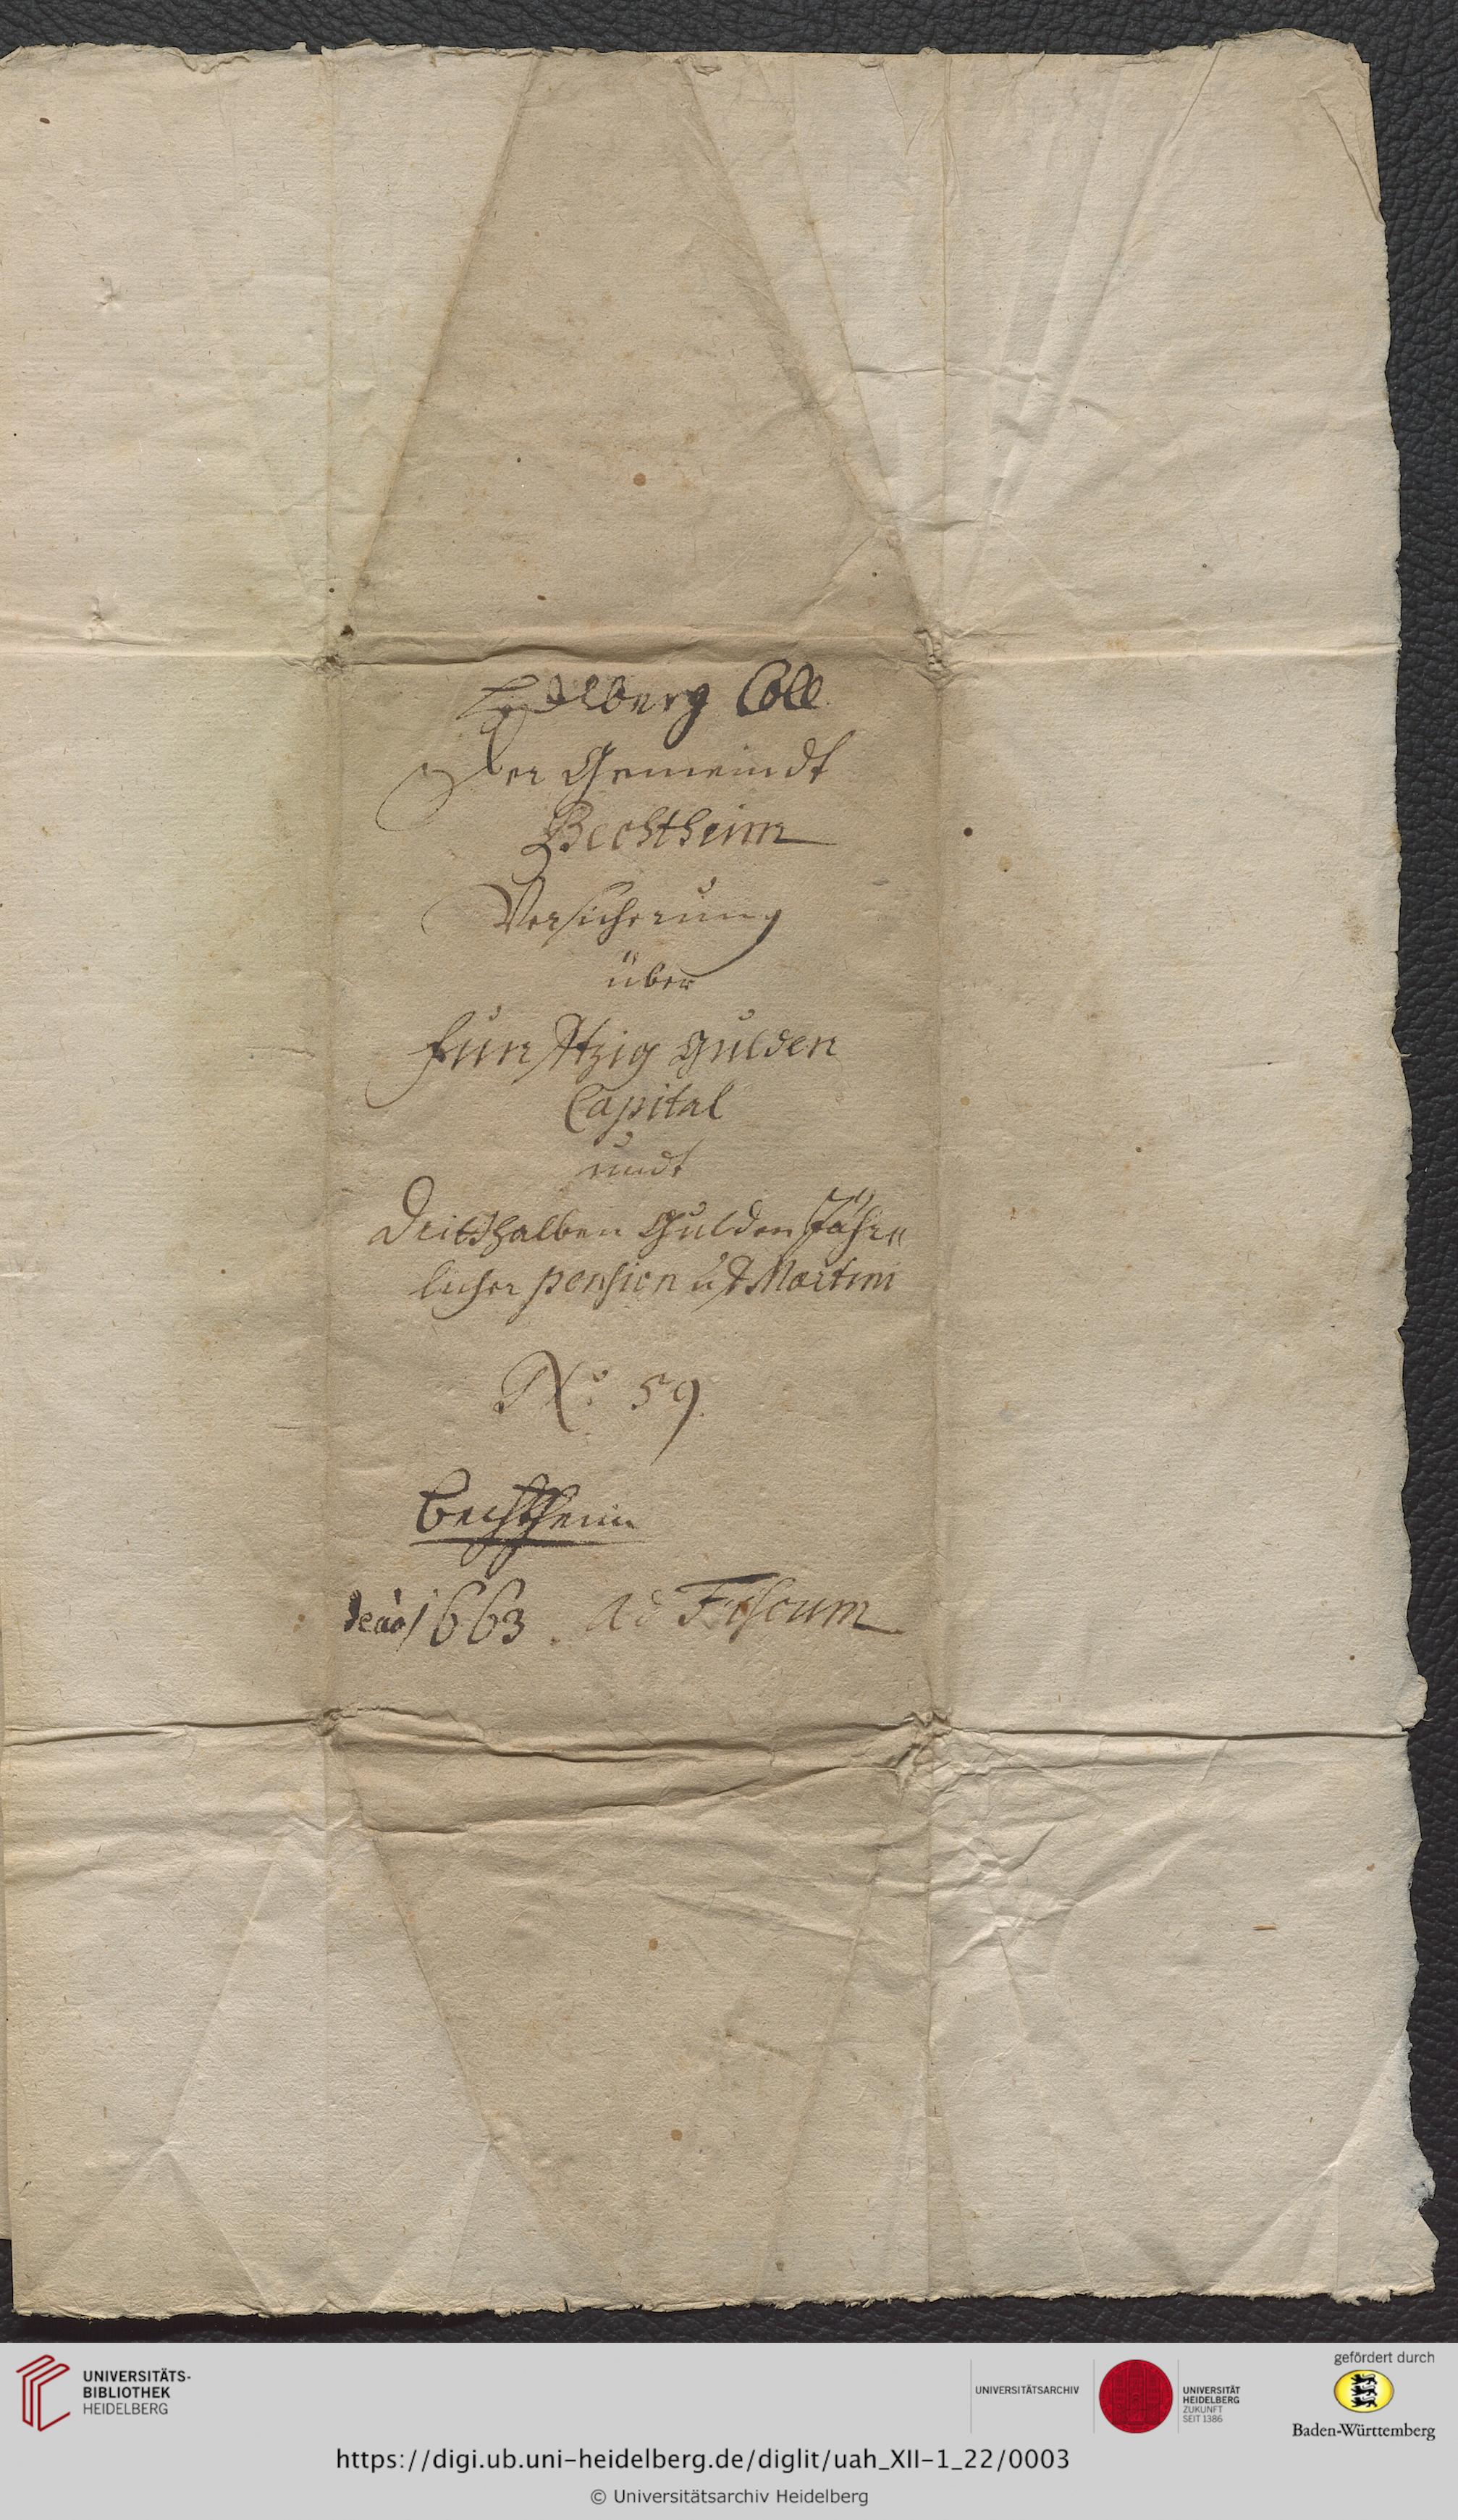 Heydelberg Coll.
Der Gemeindt
Bechtheim
Versicherung
über
Fünfftzig gulden
Capital
undt
Dritthalben Gulden Jähr„
licher pension uf Martini
No. 59.
Bechtheim
de ao 1663. Ad Fiscum
UNIVERSITÄTS-
BIBLIOTHEK
HEIDELBERG
UNIVERSITÄTSARCHIV
UNIVERSITÄT
HEIDELBERG
ZUKUNFT
SEIT 1386
gefördert durch
Baden-Württemberg
https://digi.ub.uni-heidelberg.de/diglit/uah_XII-1_22/0003
© Universitätsarchiv Heidelberg